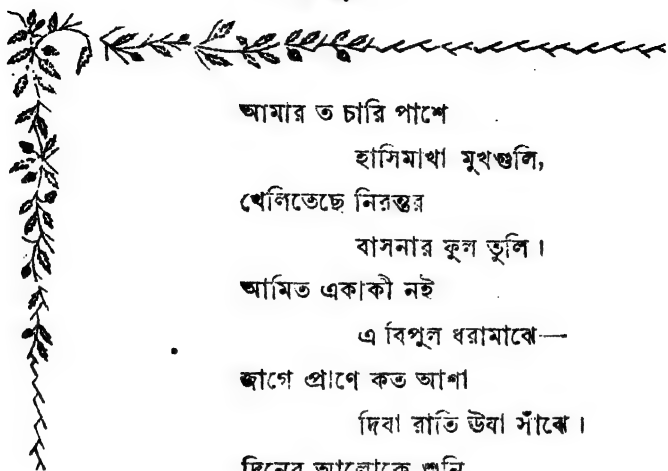 আমার ত চারি পাশে
হাসিমাখা মুখগুলি,
খেলিতেছে নিরন্তর
বাসনার ফুল তুলি।
আমিত একাকী নই
এ বিপুল ধরামাঝে—
জাগে প্রাণে কত আশা
দিবা রাতি ঊষা সাঁঝে।
দিনের আলোকে শুনি